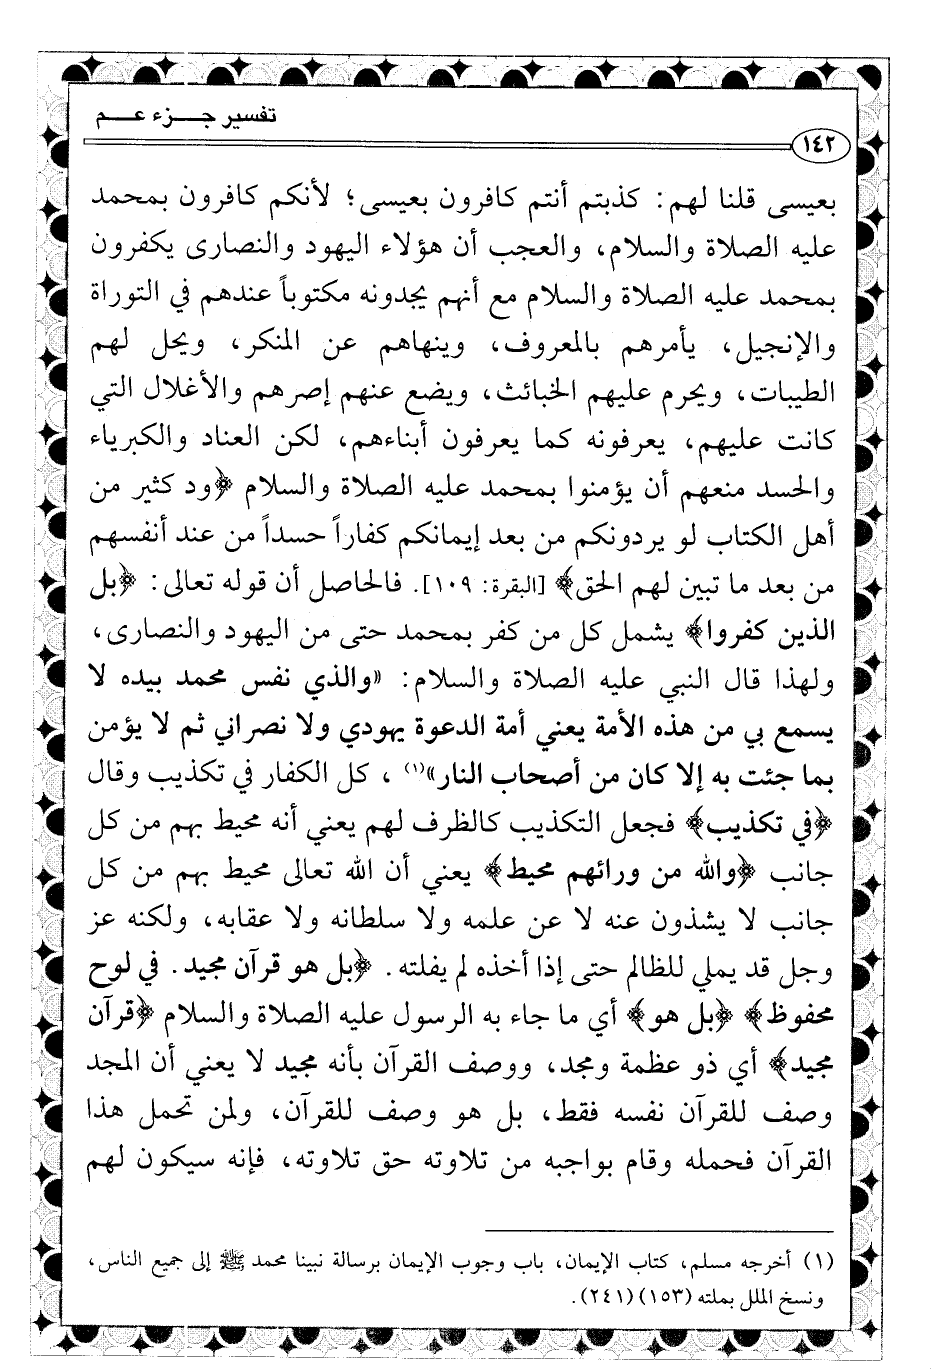 تفسير جـــزء عـــم
١٤٢
بعيسى قلنا لهم: كذبتم أنتم كافرون بعيسى؛ لأنكم كافرون بمحمد
عليه الصلاة والسلام، والعجب أن هؤلاء اليهود والنصارى يكفرون
بمحمد عليه الصلاة والسلام مع أنهم يجدونه مكتوباً عندهم في التوراة
والإنجيل، يأمرهم بالمعروف، وينهاهم عن المنكر، ويحل لهم
الطيبات، ويحرم عليهم الخبائث، ويضع عنهم إصرهم والأغلال التي
كانت عليهم، يعرفونه كما يعرفون أبناءهم، لكن العناد والكبرياء
والحسد منعهم أن يؤمنوا بمحمد عليه الصلاة والسلام ﴿ود كثير من
أهل الكتاب لو يردونكم من بعد إيمانكم كفاراً حسداً من عند أنفسهم
من بعد ما تبين لهم الحق﴾ [البقرة: ١٠٩]. فالحاصل أن قوله تعالى: ﴿بل
الذين كفروا﴾ يشمل كل من كفر بمحمد حتى من اليهود والنصارى،
ولهذا قال النبي عليه الصلاة والسلام: «والذي نفس محمد بيده لا
يسمع بي من هذه الأمة يعني أمة الدعوة يهودي ولا نصراني ثم لا يؤمن
بما جئت به إلا كان من أصحاب النار»(١)، كل الكفار في تكذيب وقال
﴿في تكذيب﴾ فجعل التكذيب كالظرف لهم يعني أنه محيط بهم من كل
جانب ﴿والله من ورائهم محيط﴾ يعني أن الله تعالى محيط بهم من كل
جانب لا يشذون عنه لا عن علمه ولا سلطانه ولا عقابه، ولكنه عز
وجل قد يملي للظالم حتى إذا أخذه لم يفلته. ﴿بل هو قرآن مجيد. في لوح
محفوظ﴾ ﴿بل هو﴾ أي ما جاء به الرسول عليه الصلاة والسلام ﴿قرآن
مجيد﴾ أي ذو عظمة ومجد، ووصف القرآن بأنه مجيد لا يعني أن المجد
وصف للقرآن نفسه فقط، بل هو وصف للقرآن، ولمن تحمل هذا
القرآن فحمله وقام بواجبه من تلاوته حق تلاوته، فإنه سيكون لهم
(١) أخرجه مسلم، كتاب الإيمان، باب وجوب الإيمان برسالة نبينا محمد ﷺ إلى جميع الناس،
ونسخ الملل بملته (١٥٣) (٢٤١).